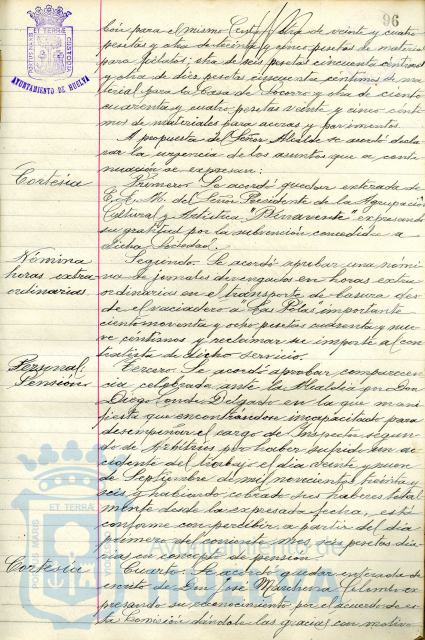 96
AYUNTAMIENTO DE HUELVA
para el mismo Centro; de veinte y cuatro
pesetas y otra de treinta y cinco pesetas de material
para Filatos; otra de seis pesetas cincuenta céntimos
y otra de diez pesetas cincuenta céntimos de ma-
terial para la Casa de Socorro y otra de ciento
cuarenta y cuatro pesetas veinte y cinco cénti-
mos de materiales para aceras y pavimentos.
A propuesta del Señor Alcalde se acordó decla-
rar la urgencia de los asuntos que a conti-
nuación se expresan:
Cortesía
Primero. Se acordó quedar enterada de
del Señor Presidente de la Agrupación
Cultural y Artística "Benavente" expresando
su gratitud por la subvención concedida a
dicha Sociedad.
Nómina
horas extra-
ordinarias
Segundo. Se acordó aprobar una nómi-
na de jornales devengados en horas extra-
ordinarias en el transporte de basura des-
de el vaciadero a "Las Polas" importante
ciento noventa y ocho pesetas cuarenta y nue-
ve céntimos y reclamar su importe al con-
tratista de dicho servicio.
Personal:
Pensión
Tercero. Se acordó aprobar comparecen-
cia celebrada ante la Alcaldía por Don
Diego Conde Delgado en la que mani-
fiesta que encontrándose incapacitado para
desempeñar el cargo de Inspector segun-
do de Arbitrios por haber sufrido un ac-
cidente del trabajo el día veinte y uno
de Septiembre de mil novecientos treinta y
seis y habiendo cobrado sus haberes total-
mente desde la expresada fecha, está
conforme con percibir a partir del día
primero del corriente mes seis pesetas dia-
rias en concepto de pensión.
Cortesía
Cuarto. Se acordó quedar enterada de
escrito de Don José Marchena Colombo ex-
presando su reconocimiento por el acuerdo de es-
ta Comisión dándole las gracias con motivo